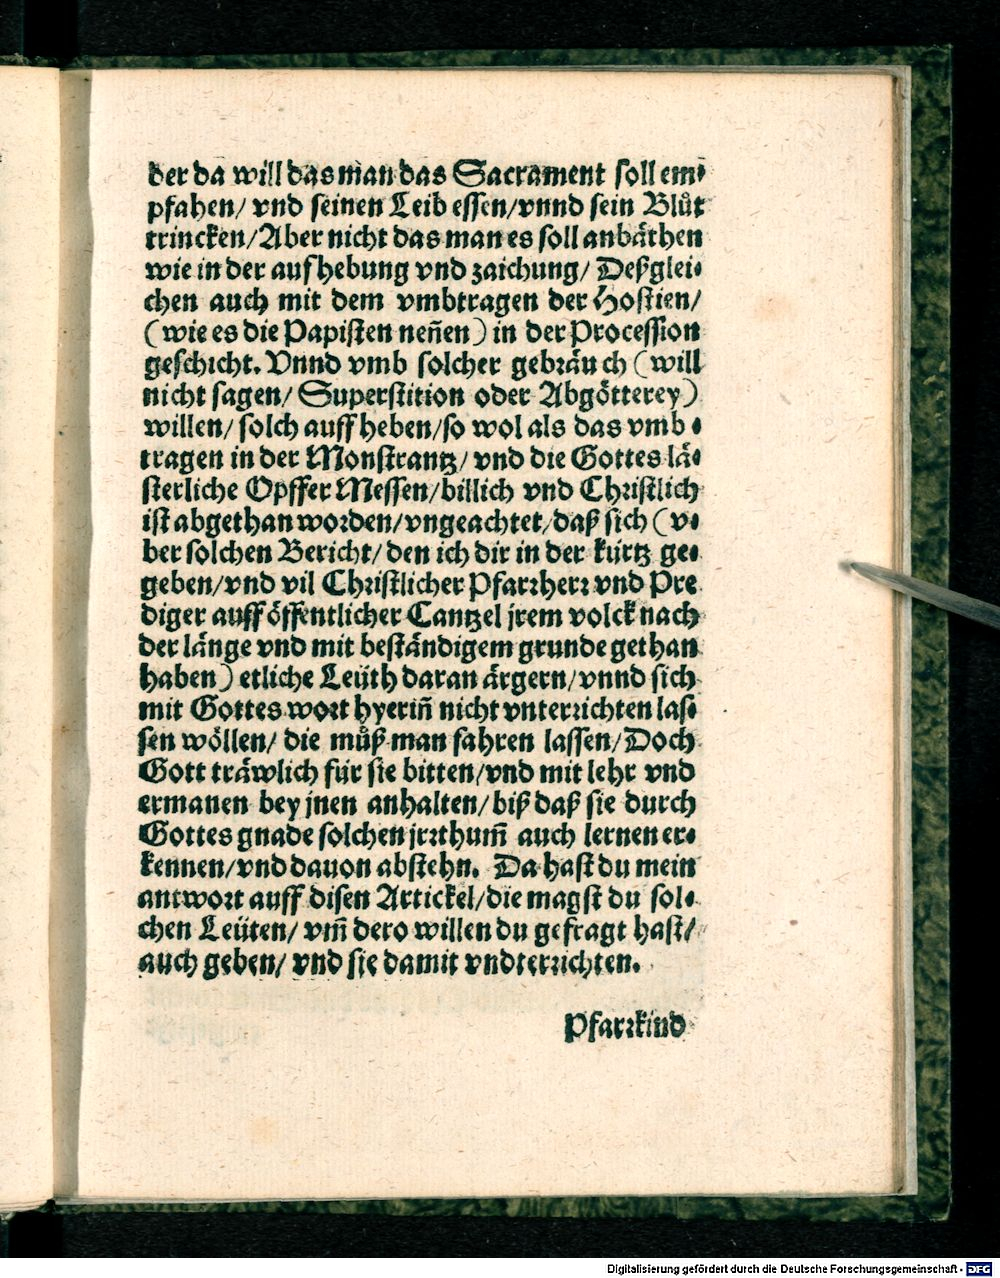 der da will das man das Sacrament soll em⸗
pfahen/ vnd seinen Leib essen/vnnd sein Blůt
trincken/Aber nicht das man es soll anbäthen
wie in der aufhebung vnd zaichung/ Deßglei⸗
chen auch mit dem vmbtragen der Hostien/
(wie es die Papisten neñen) in der Procession
geschicht. Vnnd vmb solcher gebräuch (will
nicht sagen/ Superstition oder Abgötterey)
willen/ solch auff heben/so wol als das vmb⸗
tragen in der Monstrantz/ vnd die Gottes lä⸗
sterliche Opffer Messen/billich vnd Christlich
ist abgethan worden/vngeachtet/daß sich (v⸗
ber solchen Bericht/ den ich dir in der kürtz ge⸗
geben/vnd vil Christlicher Pfarrherr vnd Pre
diger auff öffentlicher Cantzel jrem volck nach
der länge vnd mit beständigem grunde gethan
haben) etliche Leüth daran ärgern/vnnd sich
mit Gottes wort hyeriñ nicht vnterrichten las⸗
sen wöllen/ die můß man fahren lassen/Doch
Gott träwlich für sie bitten/vnd mit lehr vnd
ermanen bey jnen anhalten/biß daß sie durch
Gottes gnade solchen jrrthum̃ auch lernen er⸗
kennen/vnd dauon abstehn. Da hast du mein
antwort auff disen Artickel/die magst du sol⸗
chen Leüten/ vm̃ dero willen du gefragt hast/
auch geben/ vnd sie damit vndterrichten.
Pfarrkind
Digitalisierung gefördert durch die Deutsche Forschungsgemeinschaft - DFG